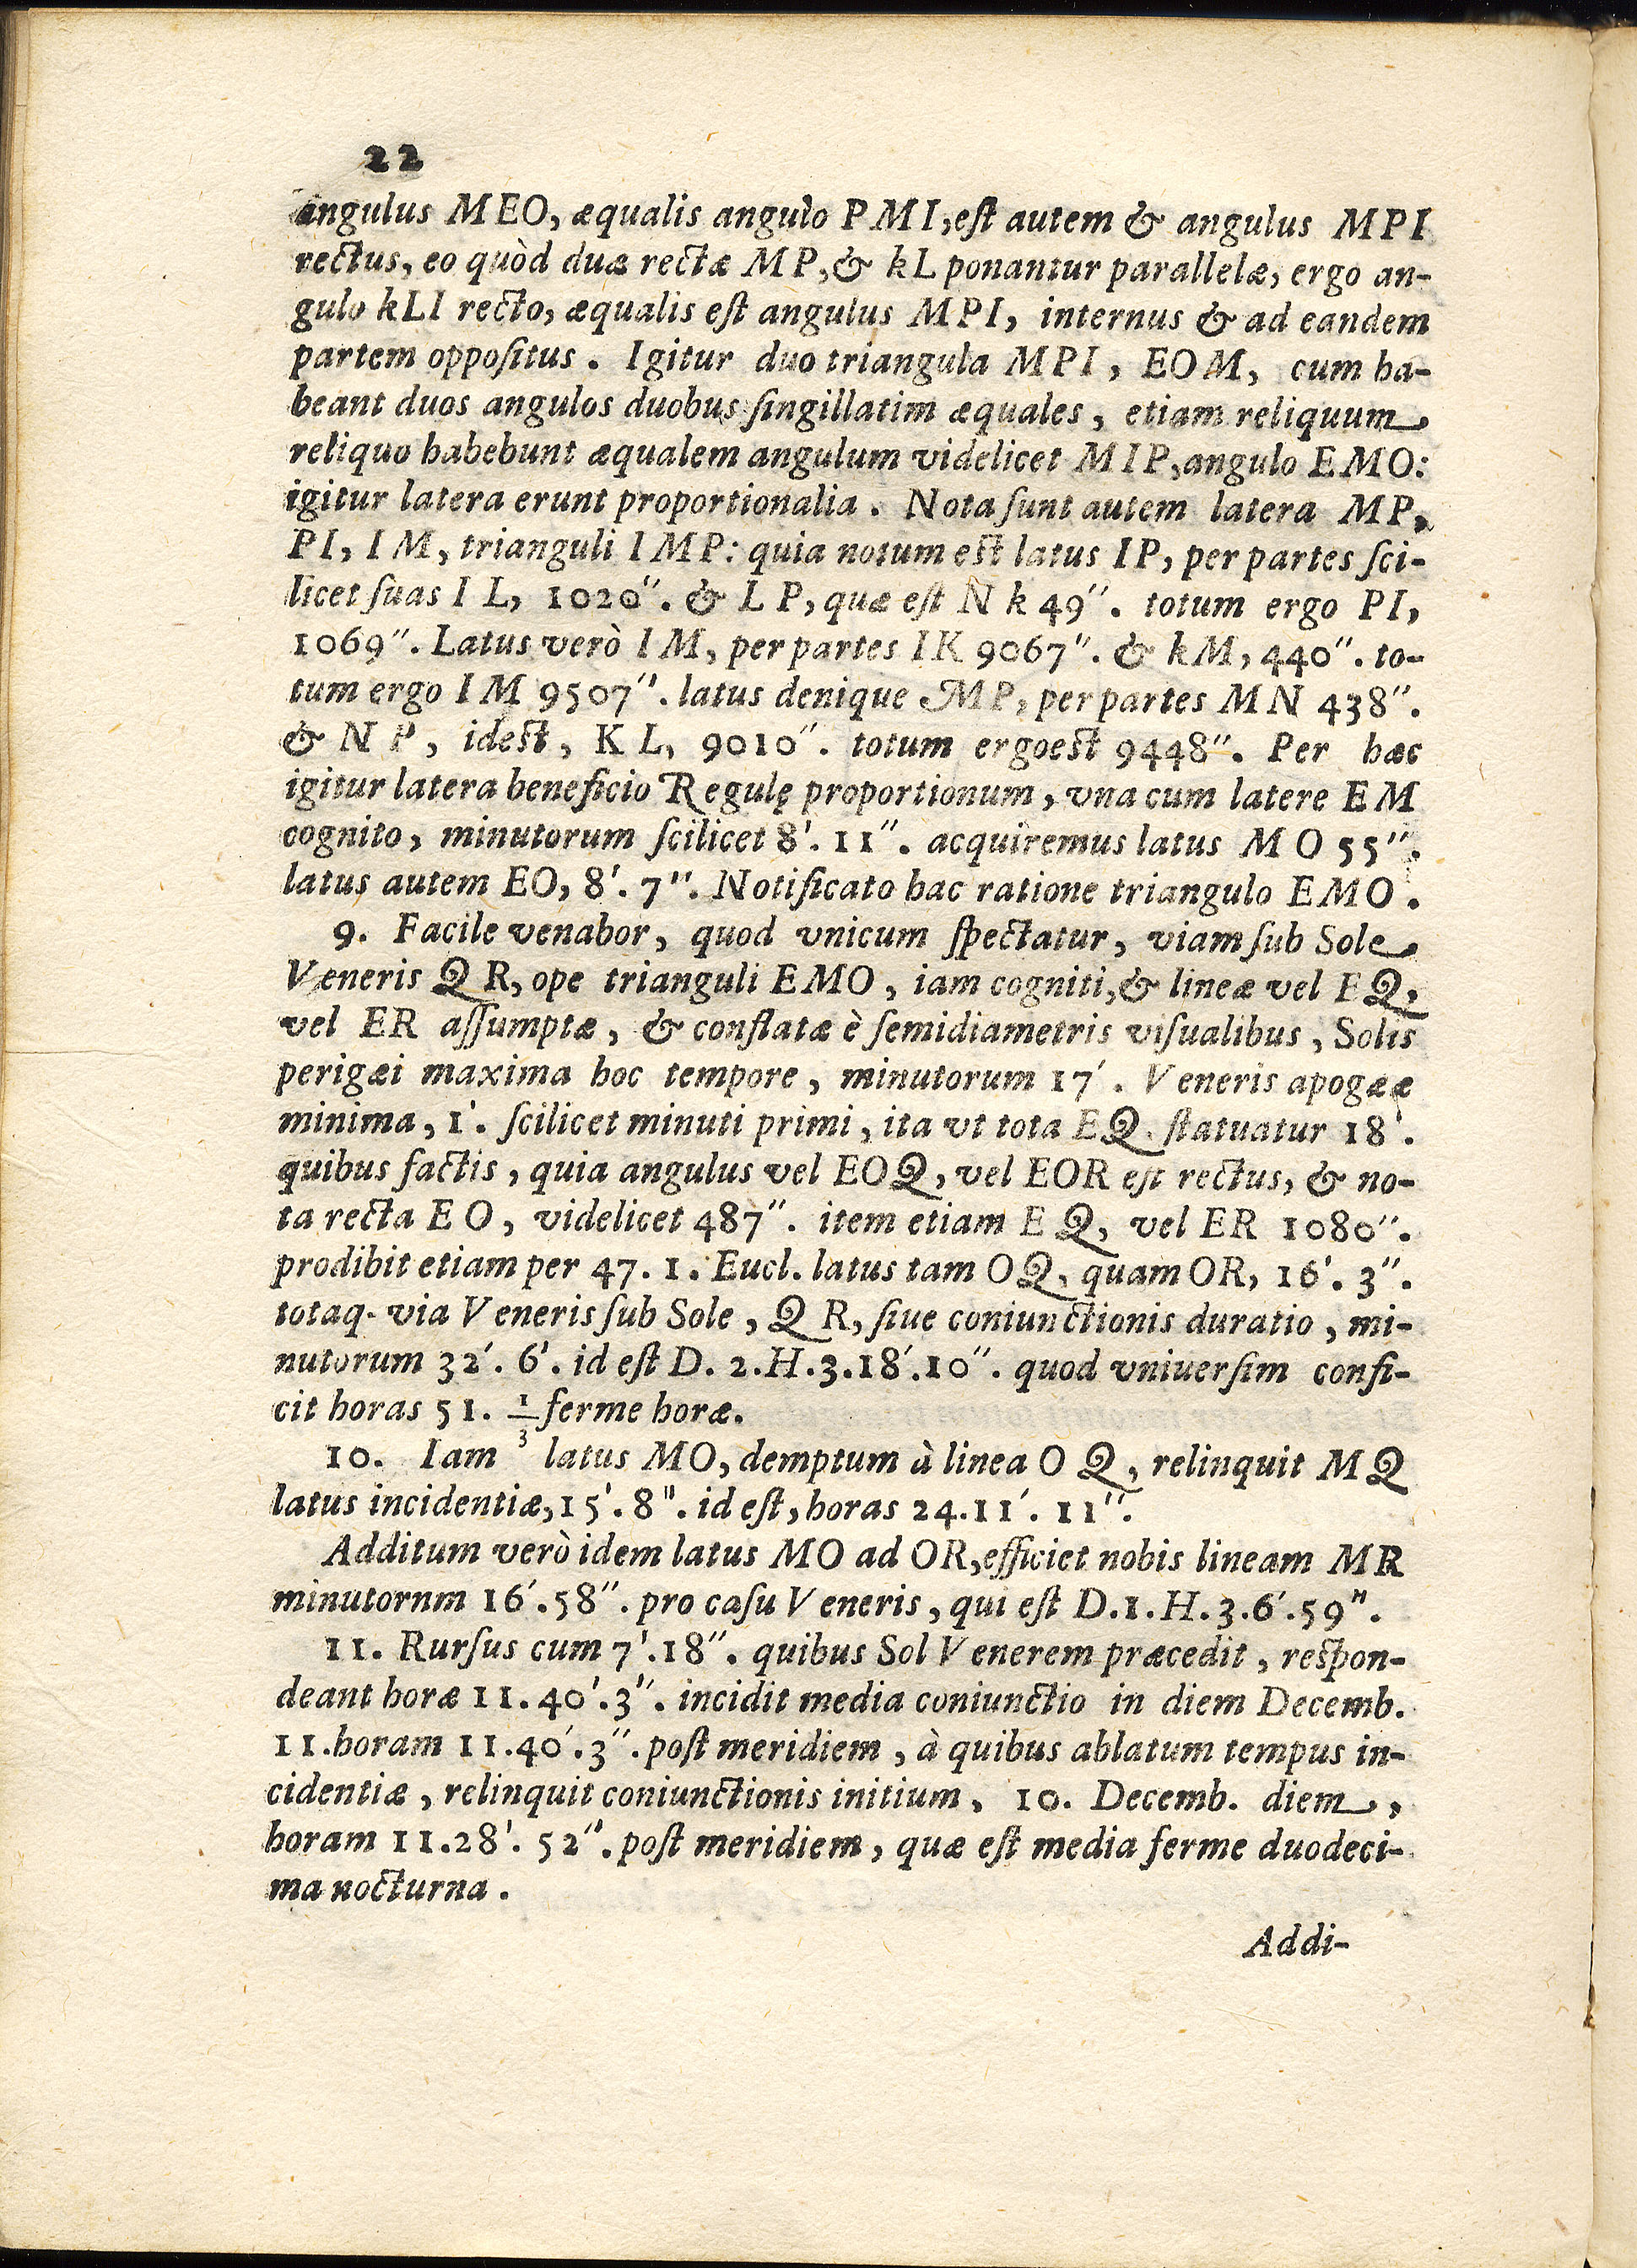 22
angulus MEO, æqualis angulo PMI, est autem & angulus MPI
rectus, eo quòd duæ rectæ MP, & kL ponantur parallelæ, ergo an-
gulo kLI recto, æqualis est angulus MPI, internus & ad eandem
partem oppositus. Igitur duo triangula MPI, EOM, cum ha-
beant duos angulos duobus singillatim æquales, etiam reliquum
reliquo habebunt æqualem angulum videlicet MIP, angulo EMO:
igitur latera erunt proportionalia. Nota sunt autem latera MP,
PI, IM, trianguli IMP: quia notum est latus IP, per partes sci-
licet suas IL, 1020″. & LP, quæ est Nk 49″. totum ergo PI,
1069″. Latus verò IM, per partes IK 9067″. & kM, 440″. to-
tum ergo IM 9507″. latus denique MP, per partes MN 438″.
& NP, idest, KL, 9010″. totum ergoest 9448″. Per hæc
igitur latera beneficio Regulę proportionum, vna cum latere EM
cognito, minutorum scilicet 8′. 11″. acquiremus latus MO 55″.
latus autem EO, 8′. 7″. Notificato hac ratione triangulo EMO.
9. Facile venabor, quod vnicum spectatur, viam sub Sole
Veneris QR, ope trianguli EMO, iam cogniti, & lineæ vel EQ,
vel ER assumptæ, & conflatæ è semidiametris visualibus, Solis
perigæi maxima hoc tempore, minutorum 17′. Veneris apogææ
minima, 1′. scilicet minuti primi, ita vt tota EQ, statuatur 18′.
quibus factis, quia angulus vel EOQ, vel EOR est rectus, & no-
ta recta EO, videlicet 487″. item etiam EQ, vel ER 1080″.
prodibit etiam per 47. 1. Eucl. latus tam OQ, quam OR, 16′. 3″.
totaq. via Veneris sub Sole, QR, siue coniunctionis duratio, mi-
nutorum 32′. 6′. id est D. 2. H. 3. 18′. 10″. quod vniuersim confi-
cit horas 51. 1/3 ferme horæ.
10. Iam latus MO, demptum à linea OQ, relinquit MQ
latus incidentiæ, 15′. 8″. id est, horas 24. 11′. 11″.
Additum verò idem latus MO ad OR, efficiet nobis lineam MR
minutornm 16′. 58″. pro casu Veneris, qui est D. 1. H. 3. 6′. 59″.
11. Rursus cum 7′. 18″. quibus Sol Venerem præcedit, respon-
deant horæ 11. 40′. 3″. incidit media coniunctio in diem Decemb.
11. horam 11. 40′. 3″. post meridiem, à quibus ablatum tempus in-
cidentiæ, relinquit coniunctionis initium, 10. Decemb. diem,
horam 11. 28′. 52″. post meridiem, quæ est media ferme duodeci-
ma nocturna.
Addi-